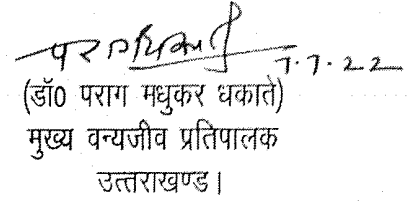 7.7.22
(डॉ0 पराग मधुकर धकाते)
मुख्य वन्यजीव प्रतिपालक
उत्तराखण्ड।